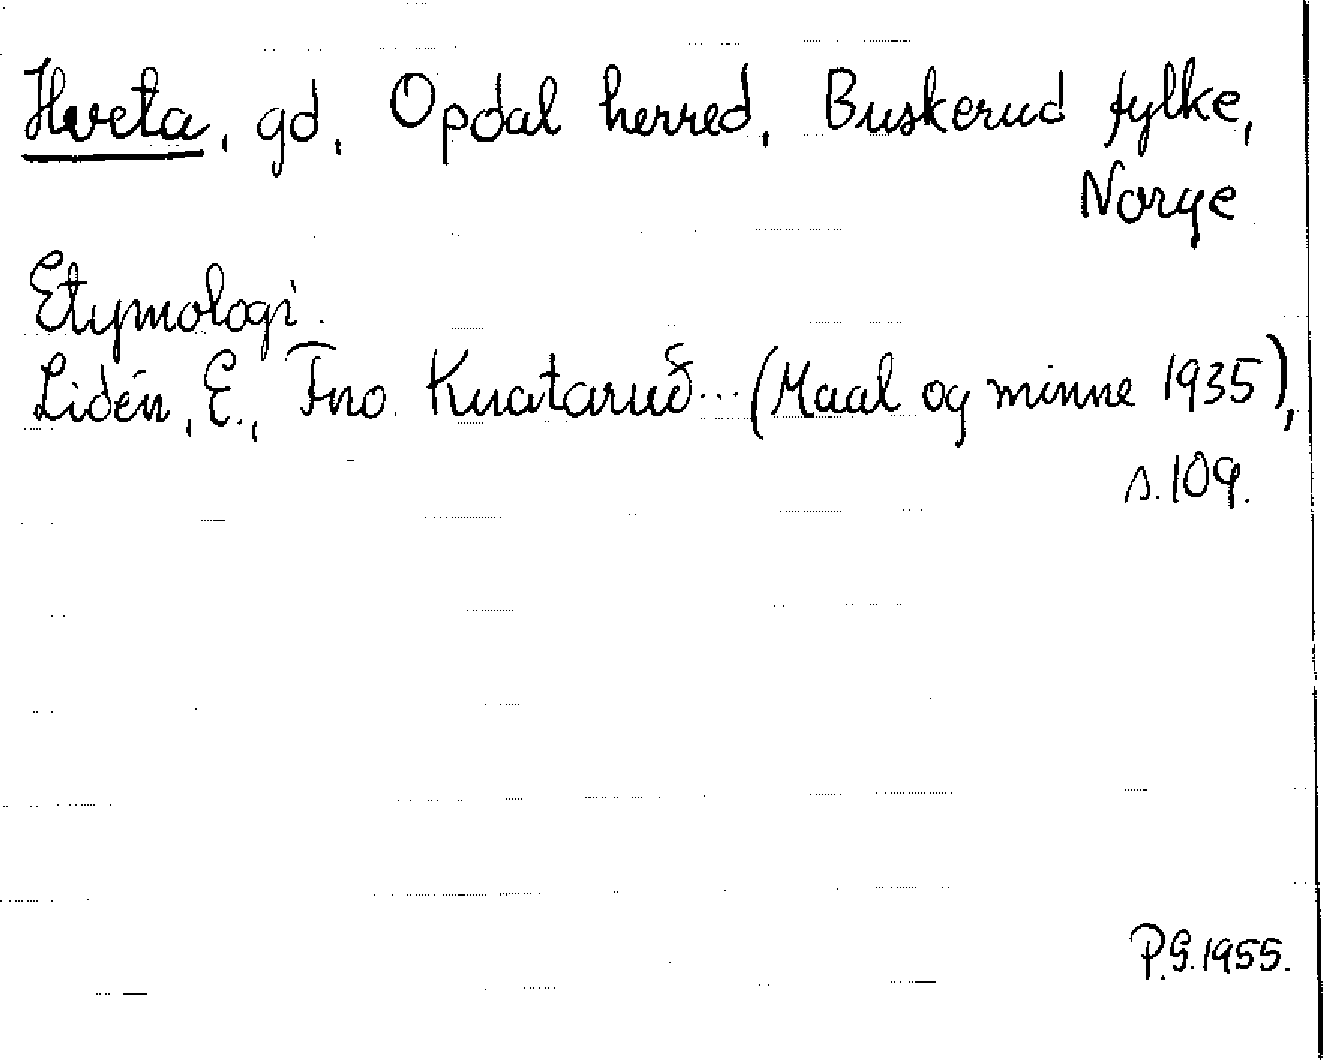 Hveta, gd, Opdal herred, Buskerud fylke,
Norge
Etymologi.
Lidén, E., Fno. Knatarud... (Maal og minne 1935),
s. 109.
P.G. 1955.